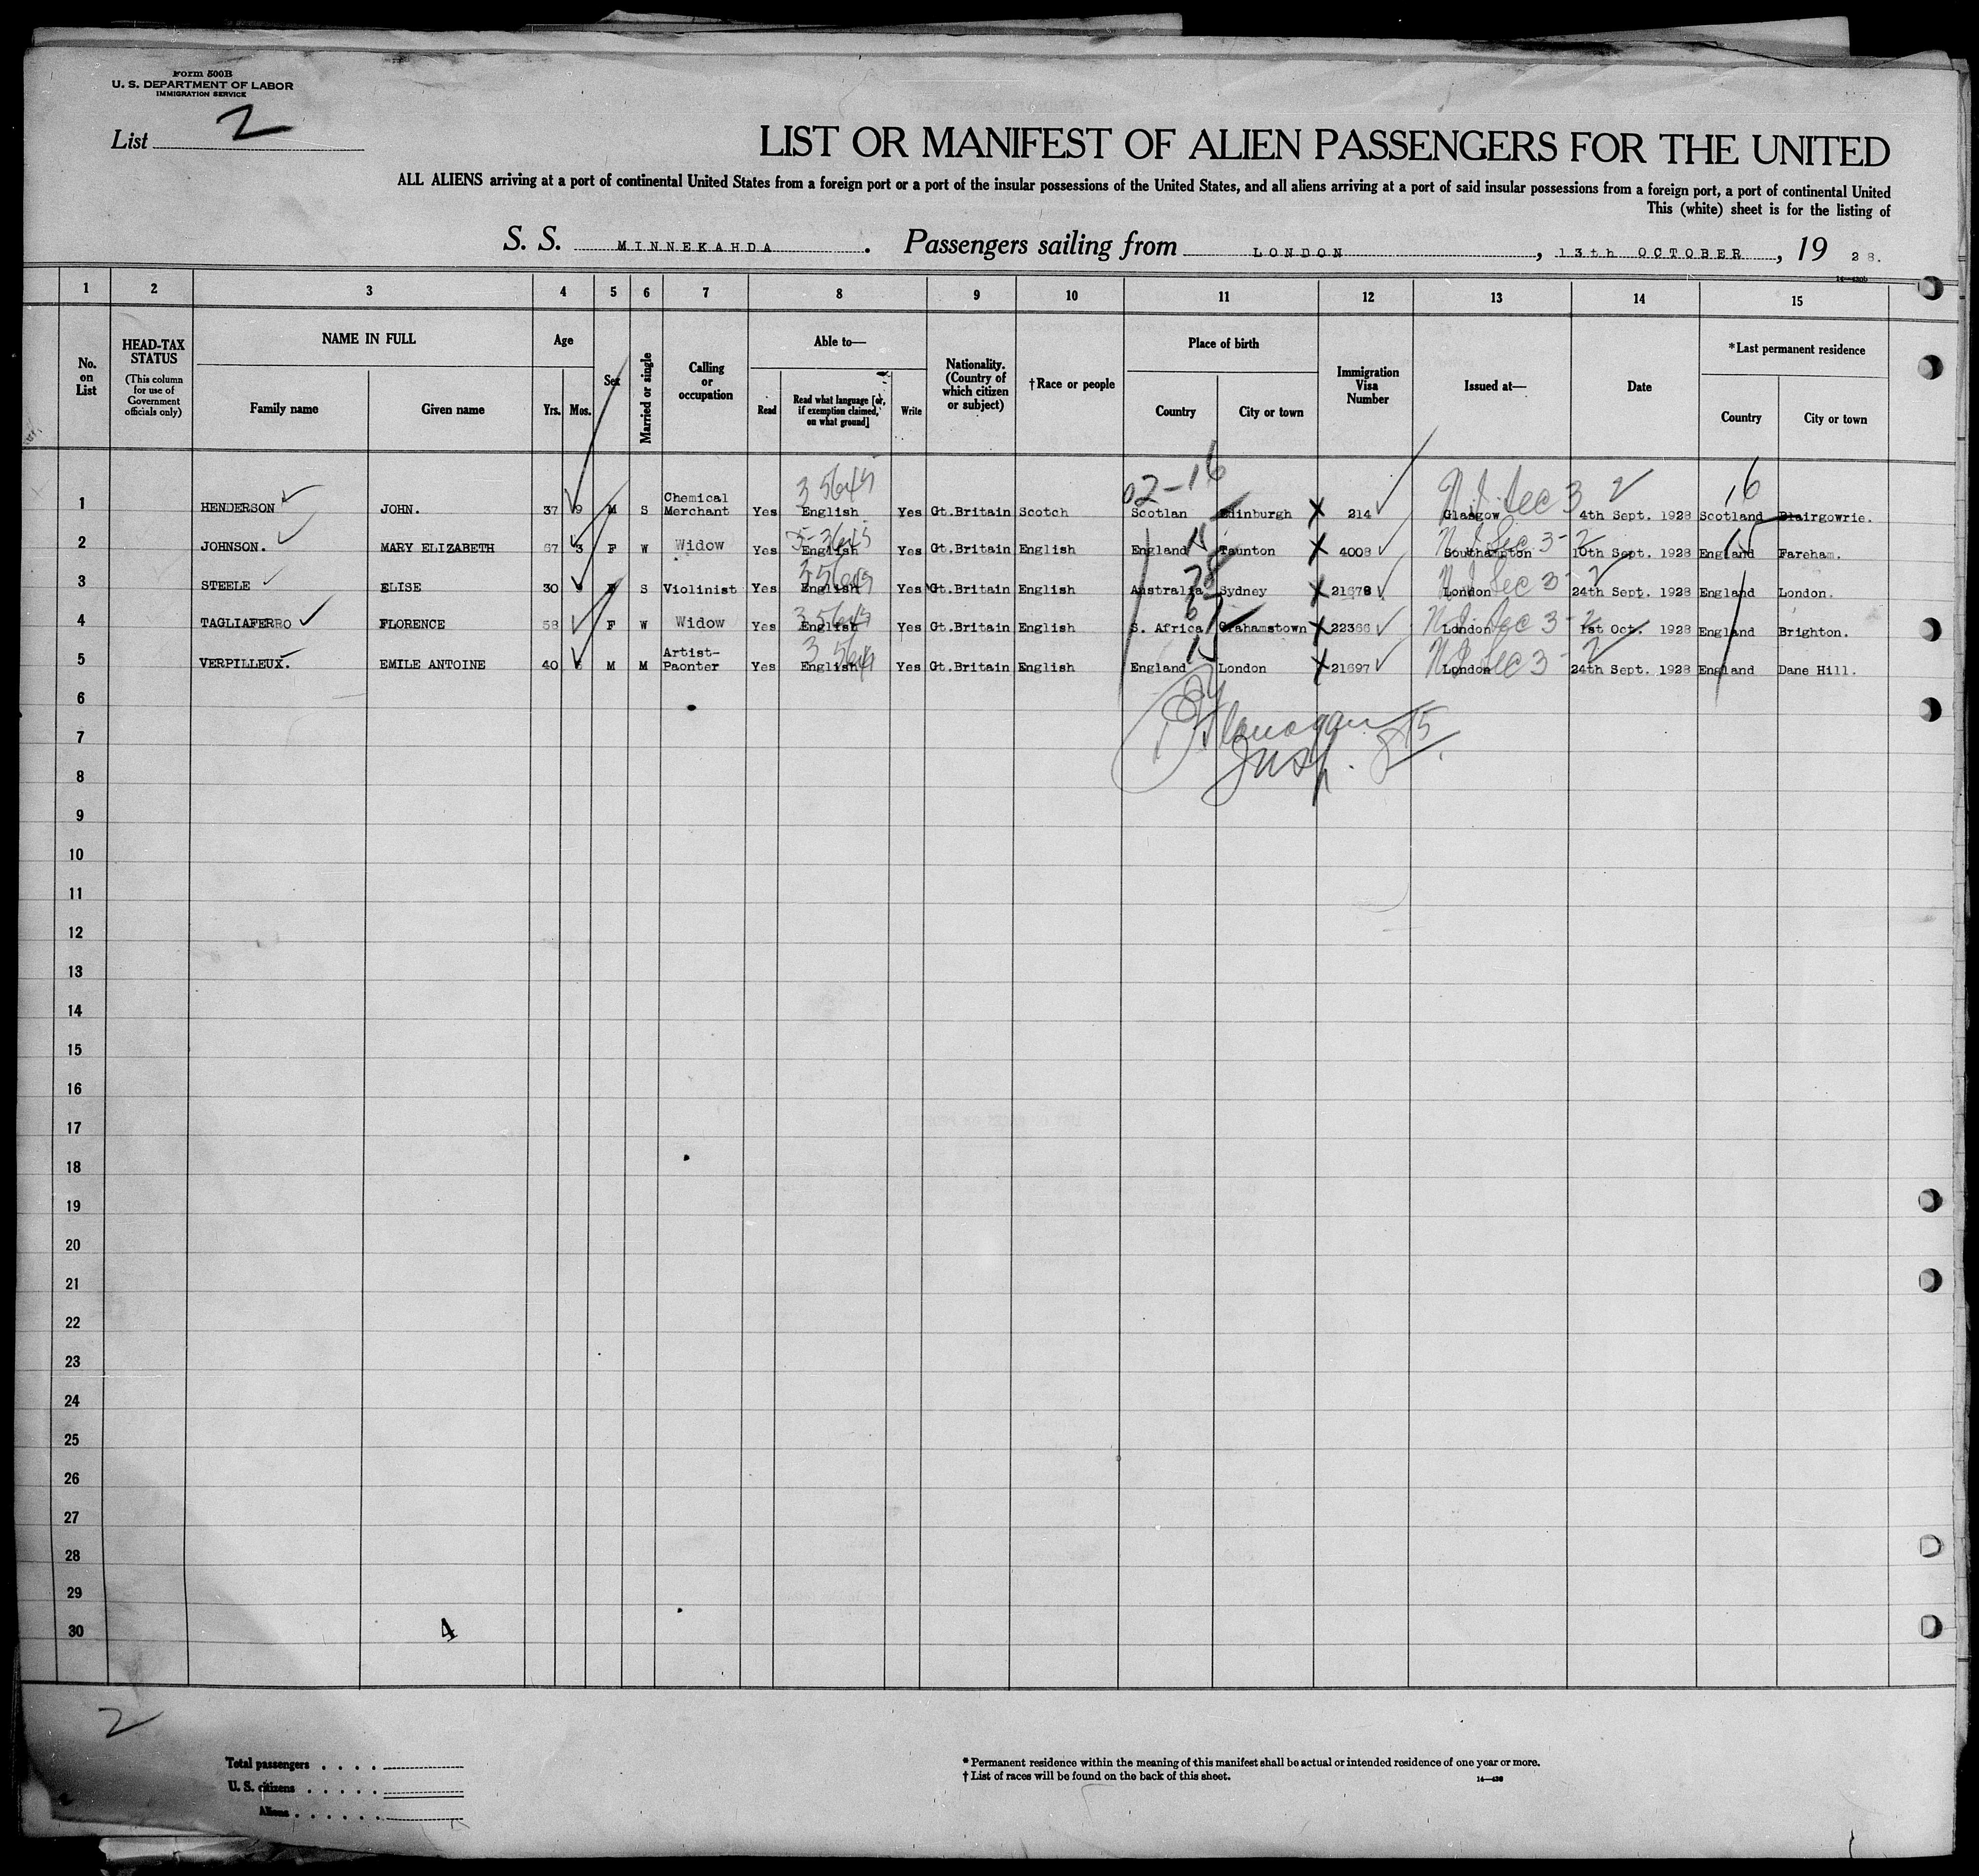 Form 500B
U. S. DEPARTMENT OF LABOR
IMMIGRATION SERVICE
List 2
LIST OR MANIFEST OF ALIEN PASSENGERS FOR THE UNITED
ALL ALIENS arriving at a port of continental United States from a foreign port or a port of the insular possessions of the United States, and all aliens arriving at a port of said insular possessions from a foreign port, a port of continental United
This (white) sheet is for the listing of
S. S. MINNEKAHDA. Passengers sailing from LONDON, 13th OCTOBER, 19 28.
1 2 3 4 5 6 7 8 9 10 11 12 13 14 15
No. on List
HEAD-TAX STATUS
(This column for use of Government officials only)
NAME IN FULL
Family name
Given name
Age
Yrs. Mos.
Sex
Married or single
Calling or occupation
Able to—
Read
Read what language [or, if exemption claimed, on what ground]
Write
Nationality. (Country of which citizen or subject)
†Race or people
Place of birth
Country
City or town
Immigration Visa Number
Issued at—
Date
*Last permanent residence
Country
City or town
02-16
16
1 HENDERSON JOHN. 37 9 M S Chemical Merchant Yes English Yes Gt.Britain Scotch Scotlan Edinburgh 214 Glasgow 4th Sept. 1928 Scotland Blairgowrie.
2 JOHNSON. MARY ELIZABETH 67 3 F W Widow Yes English Yes Gt.Britain English England Taunton 4008 Southampton 10th Sept. 1928 England Fareham.
3 STEELE ELISE 30 F S Violinist Yes English Yes Gt.Britain English Australia Sydney 21678 London 24th Sept. 1928 England London.
4 TAGLIAFERRO FLORENCE 58 F W Widow Yes English Yes Gt.Britain English S. Africa Grahamstown 22366 London 1st Oct. 1928 England Brighton.
5 VERPILLEUX. EMILE ANTOINE 40 M M Artist-Paonter Yes English Yes Gt.Britain English England London 21697 London 24th Sept. 1928 England Dane Hill.
6
7
Insp.
8
9
10
11
12
13
14
15
16
17
18
19
20
21
22
23
24
25
26
27
28
29
30
4
2
Total passengers . . . .
U. S. citizens . . . . .
Aliens . . . . . .
* Permanent residence within the meaning of this manifest shall be actual or intended residence of one year or more.
† List of races will be found on the back of this sheet.